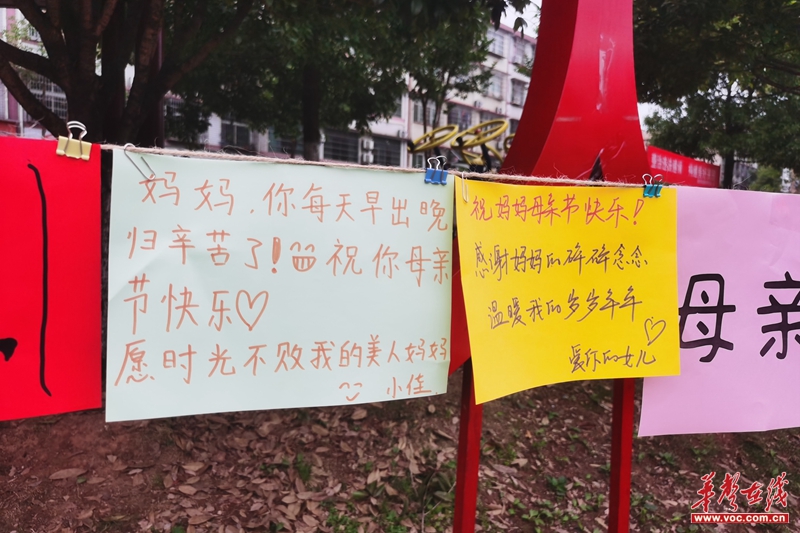 妈妈,你每天早出晚
归辛苦了!祝你母亲
节快乐♡
愿时光不败我的美人妈妈
小佳
祝妈妈母亲节快乐!
感谢妈妈的碎碎念念
温暖我的岁岁年年
爱你的女儿
母亲
华声在线
www.voc.com.cn